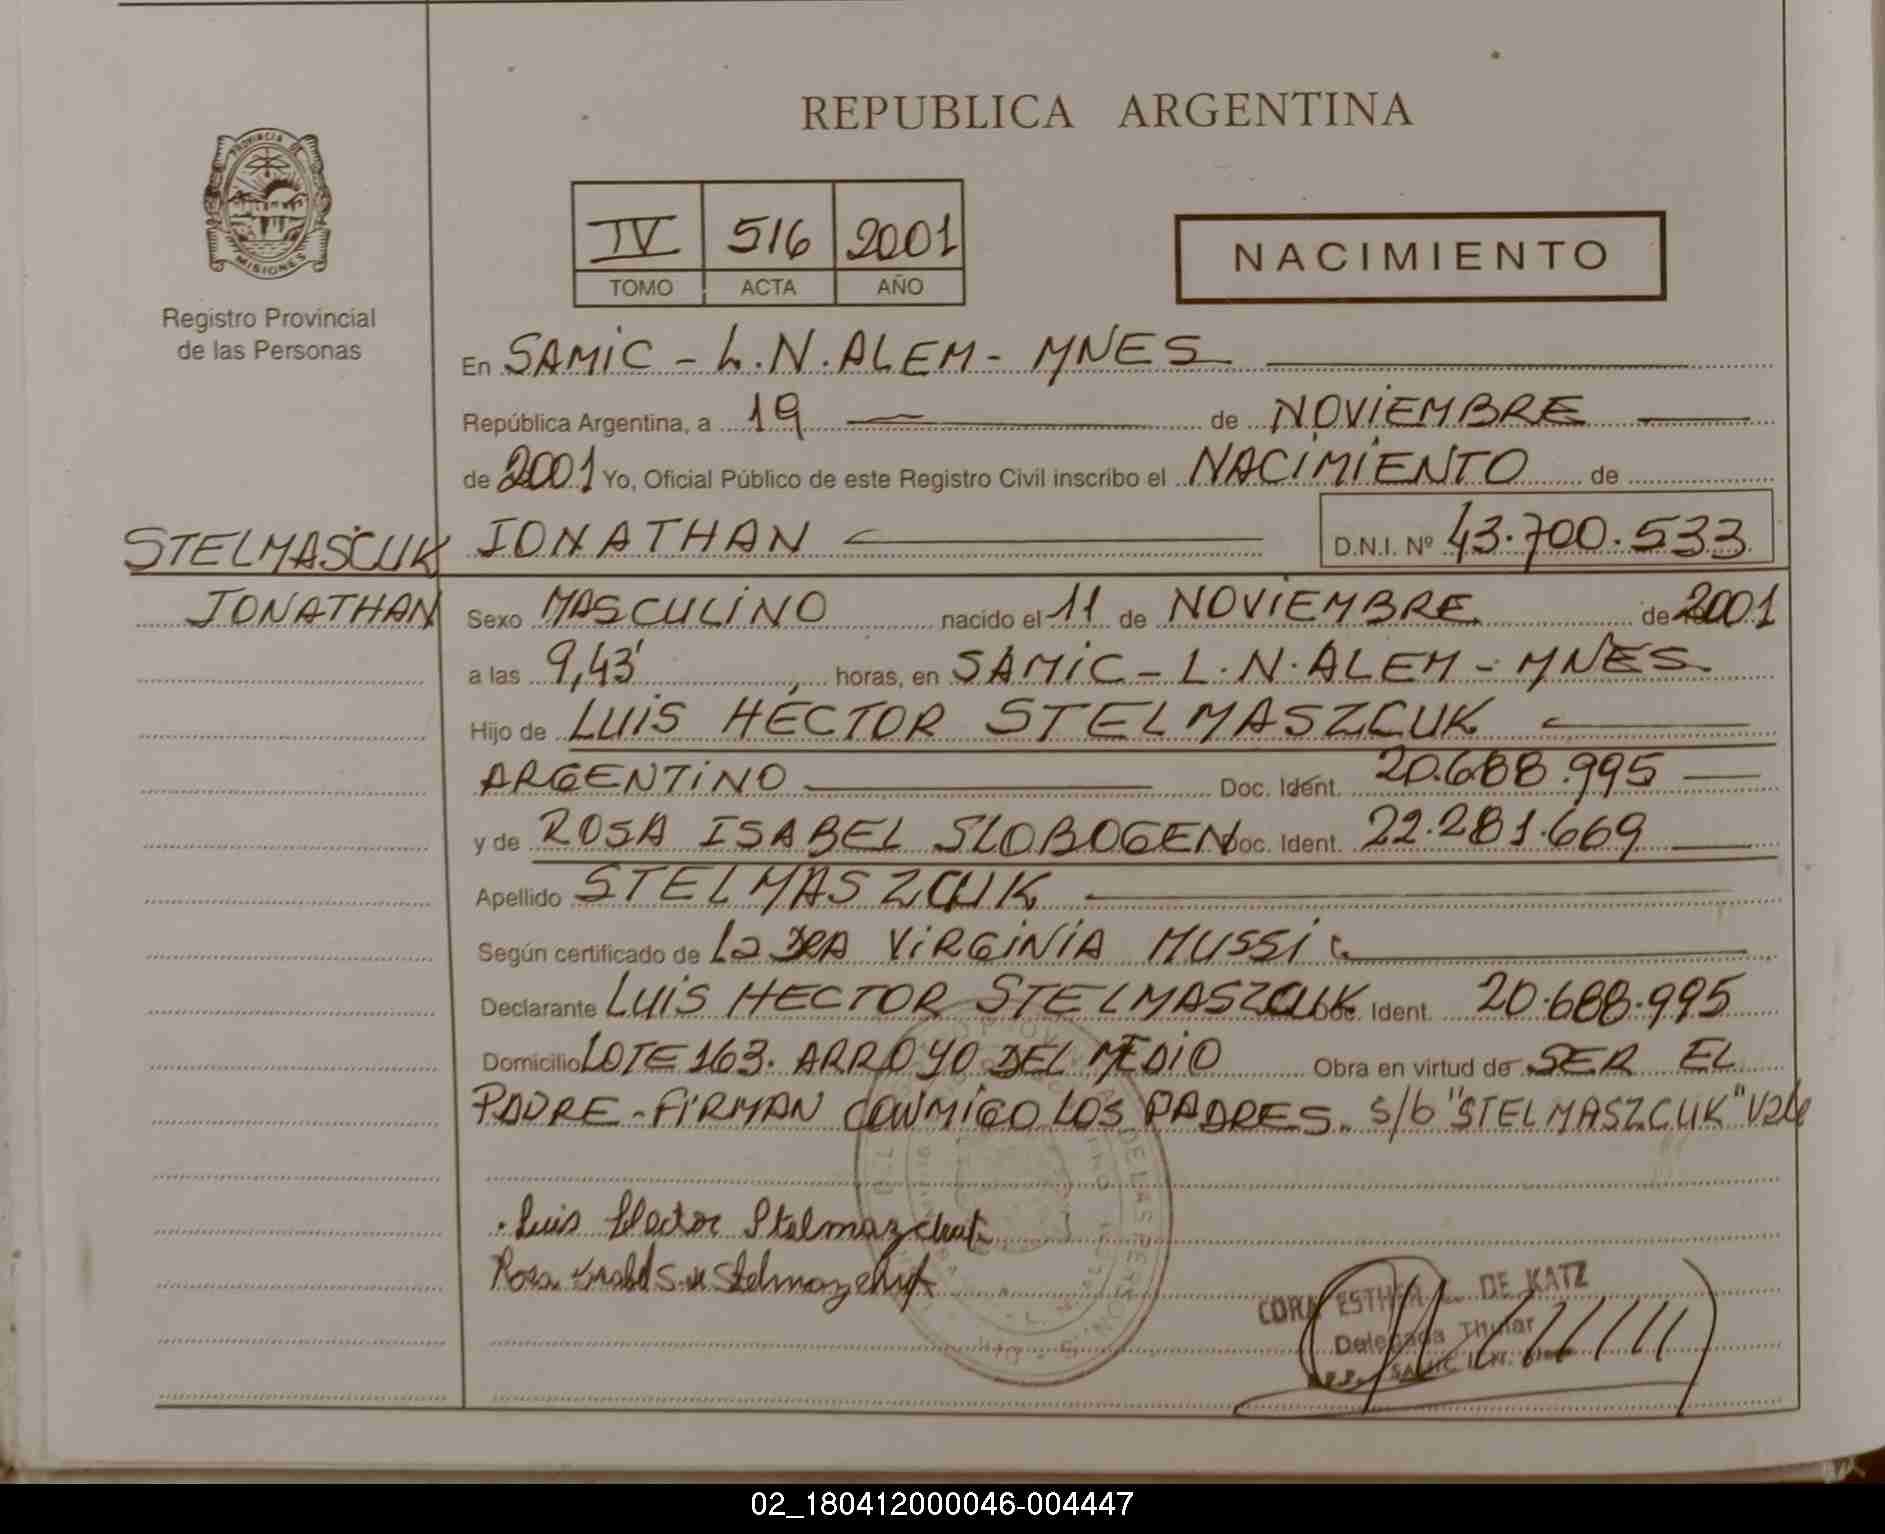 REPUBLICA ARGENTINA
PROVINCIA DE
MISIONES
Registro Provincial
de las Personas
IV 516 2001
TOMO ACTA AÑO
NACIMIENTO
En SAMIC - L.N. ALEM - MNES
República Argentina, a 19 de NOVIEMBRE
de 2001 Yo, Oficial Público de este Registro Civil inscribo el NACIMIENTO de
STELMASCUK JONATHAN D.N.I. Nº 43.700.533
JONATHAN Sexo MASCULINO nacido el 11 de NOVIEMBRE de 2001
a las 9,43' horas, en SAMIC - L.N. ALEM - MNES
Hijo de LUIS HECTOR STELMASZCUK
ARGENTINO Doc. Ident. 20.688.995
y de ROSA ISABEL SLOBOGEN Doc. Ident. 22.281.669
Apellido STELMASZCUK
Según certificado de La DRA VIRGINIA MUSSI
Declarante LUIS HECTOR STELMASZCUK Doc. Ident. 20.688.995
Domicilio LOTE 163. ARROYO DEL MEDIO Obra en virtud de SER EL
PADRE - FIRMAN CONMIGO LOS PADRES. s/b "STELMASZCUK" Vale
Luis Hector Stelmazchuk
Rosa Isabel S. de Stelmazchuk
CORA ESTHER DE KATZ
Delegada Titular
02_180412000046-004447